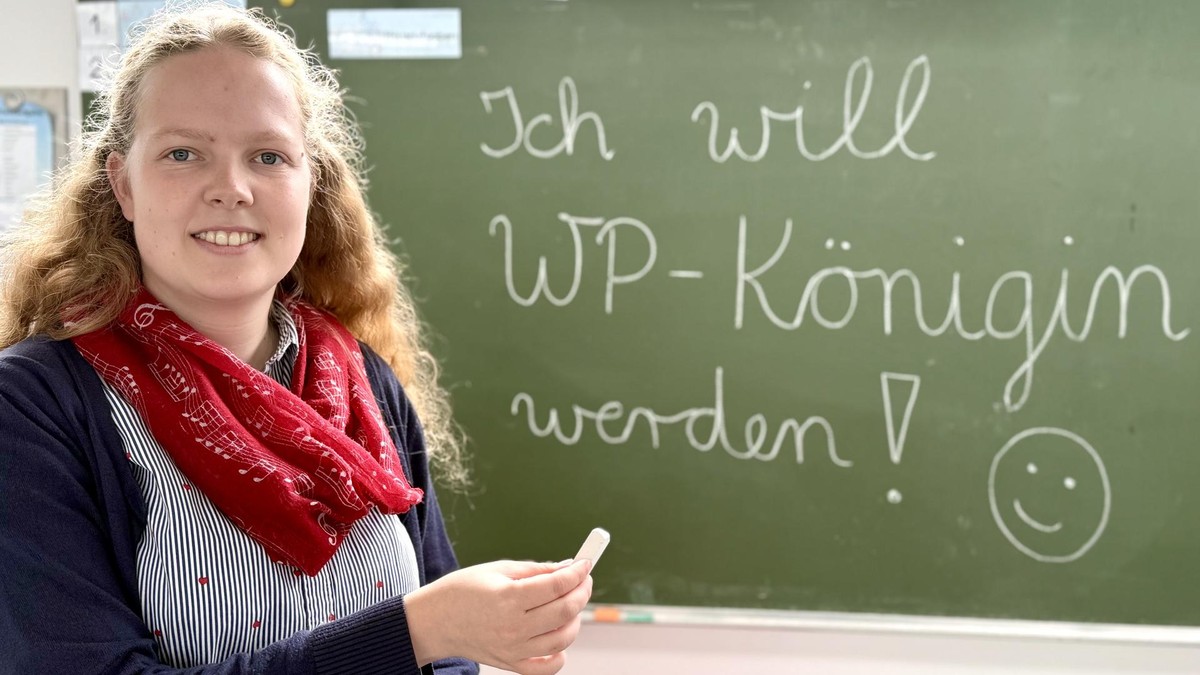 Ich will
WP-Königin
werden!